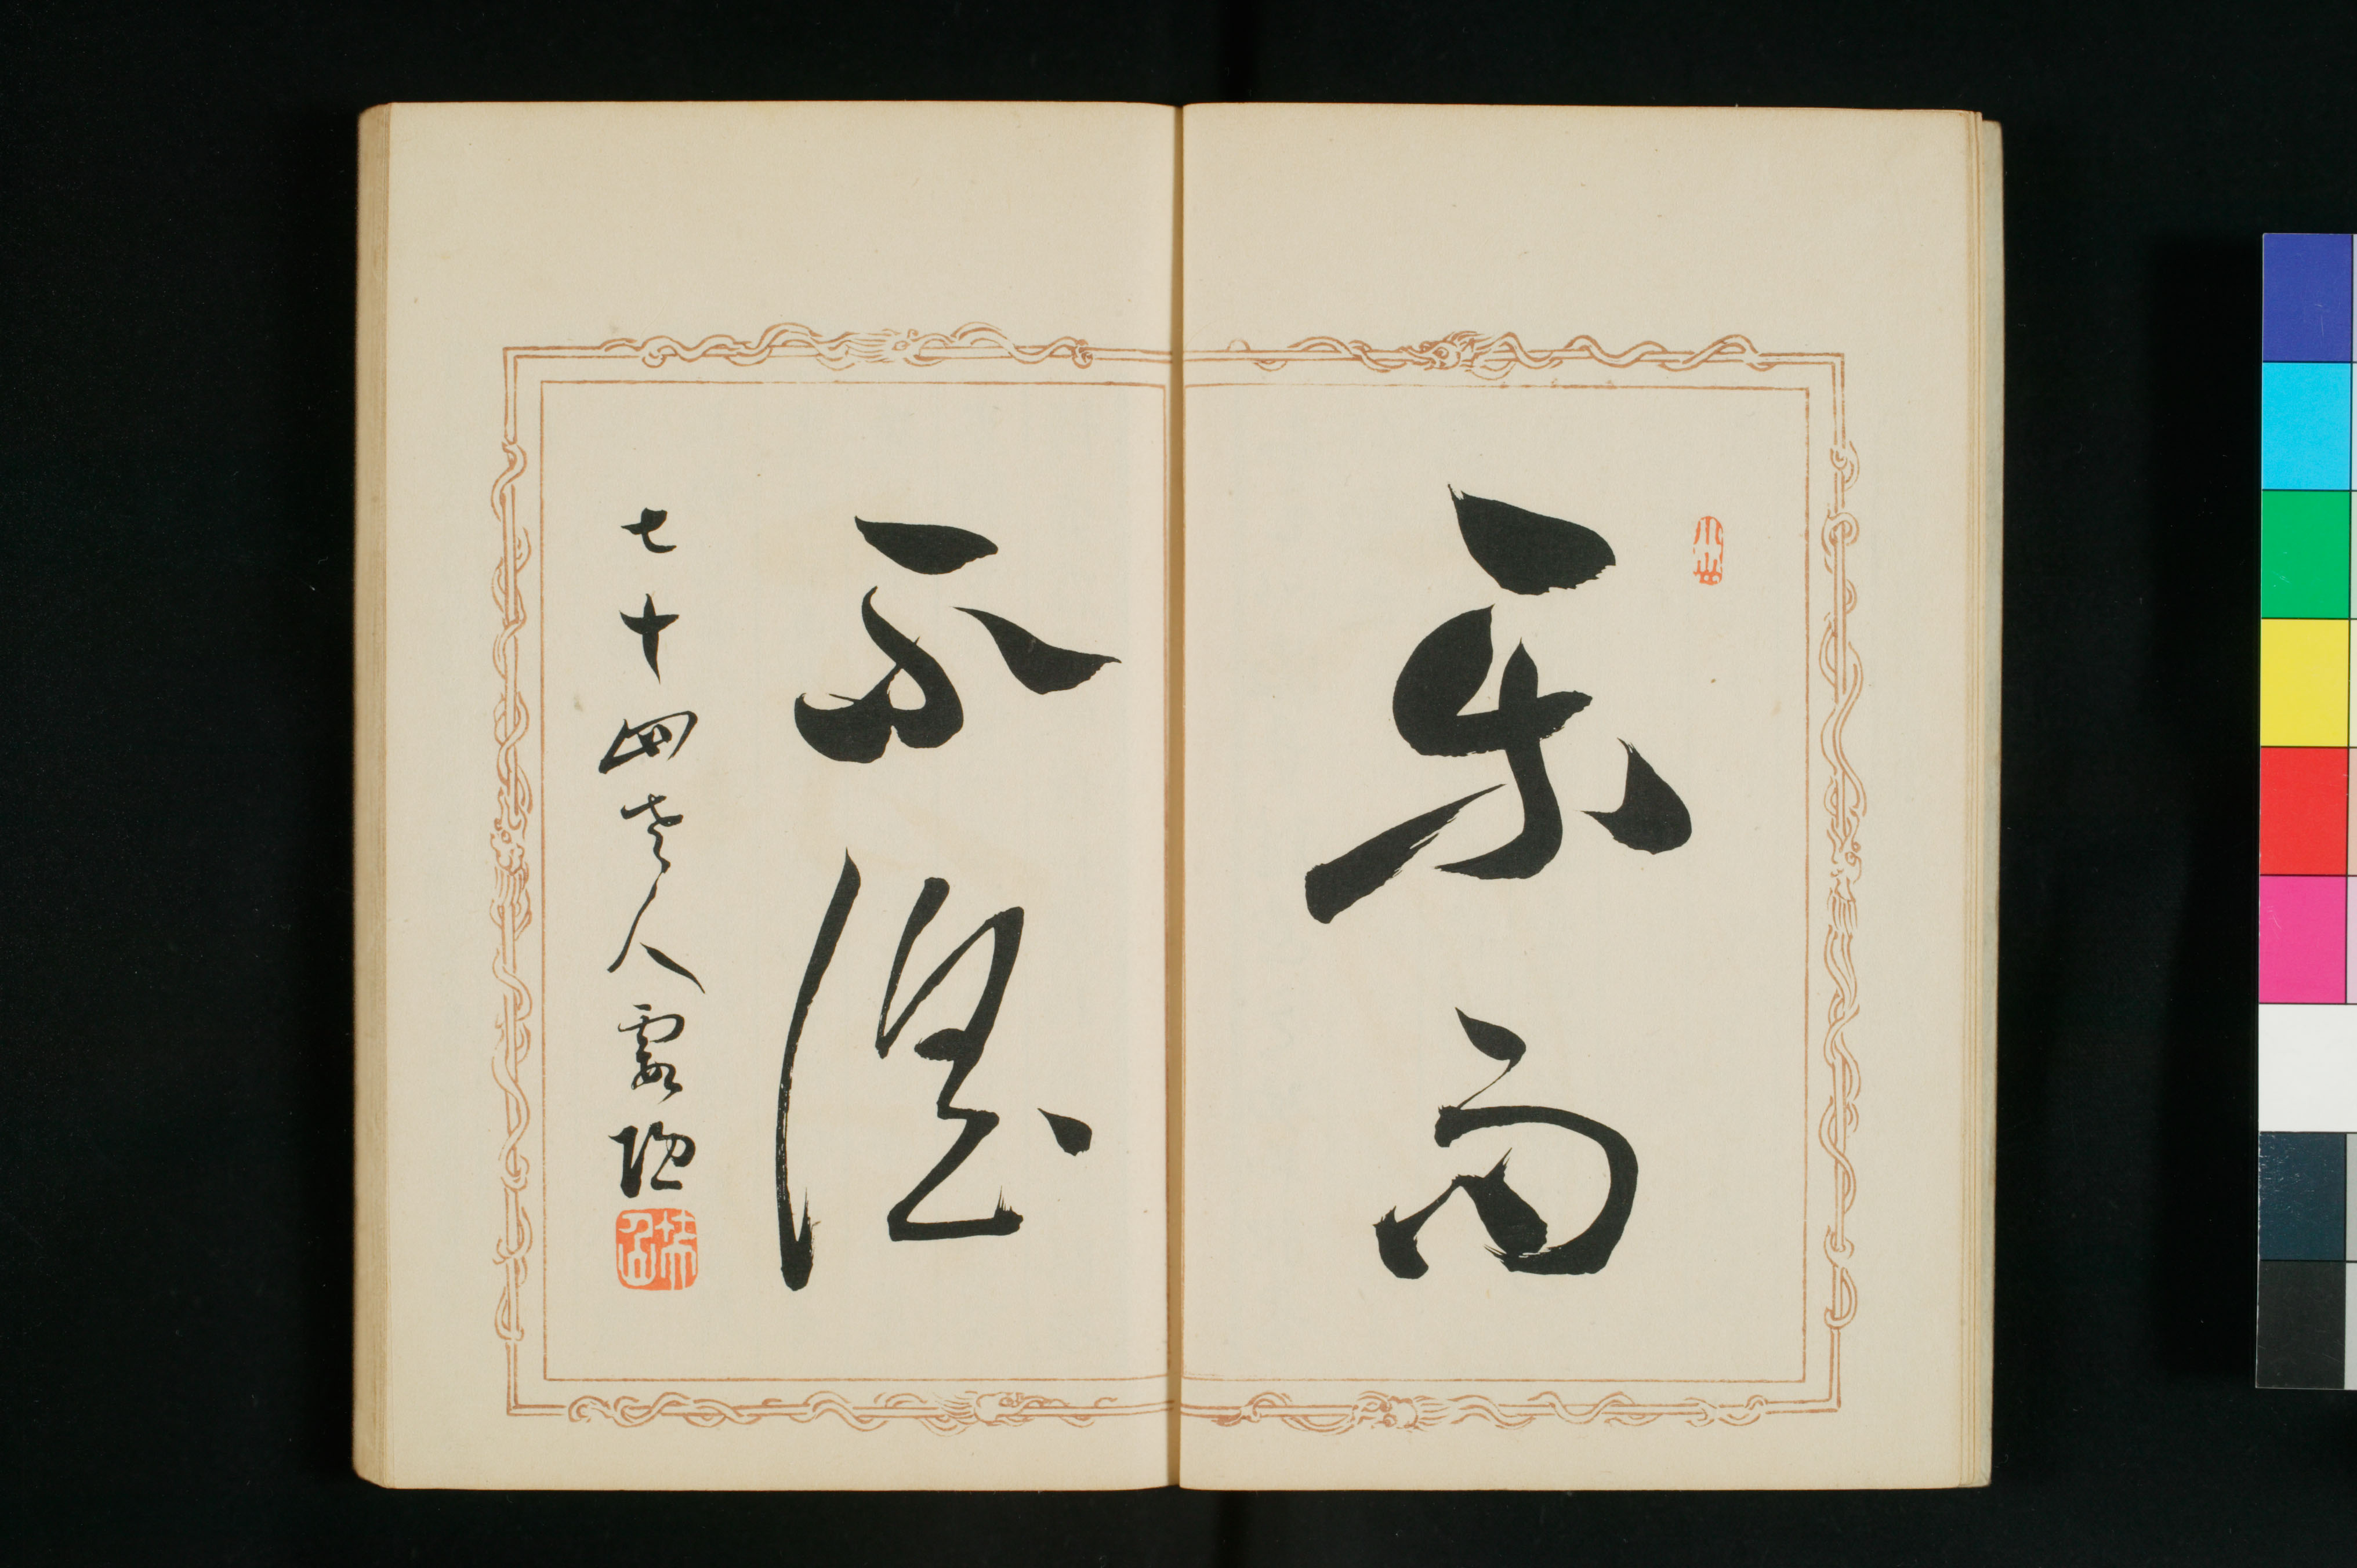 樂而
不淫
七十四老人霞